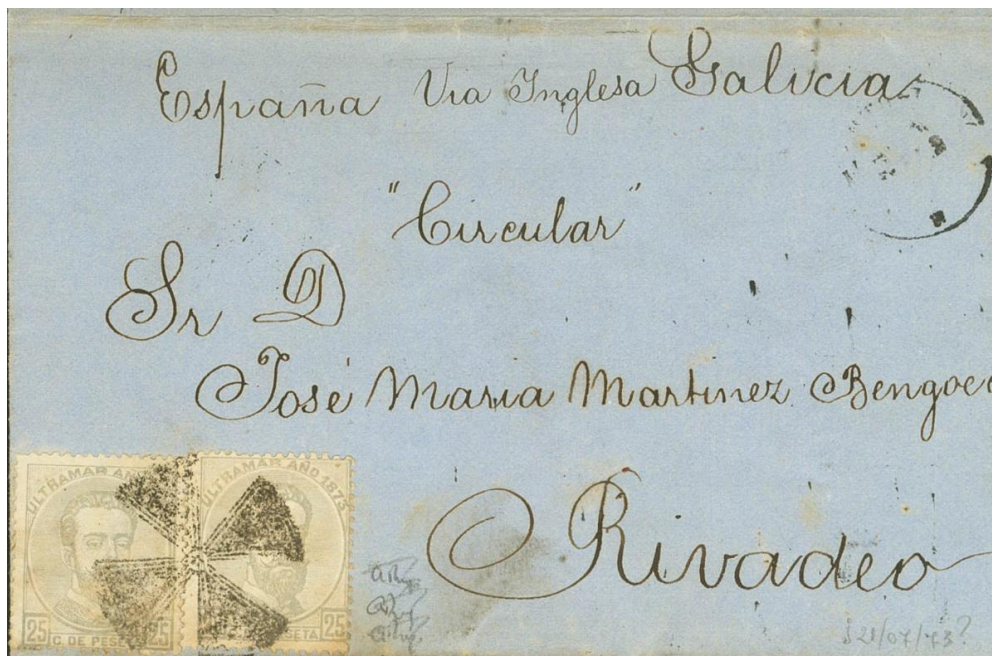 España Via Inglesa Galicia
"Circular"
Sr D
José Maria Martinez Bengoec
Rivadeo
ULTRAMAR AÑO
25 C. DE PESE 25
ULTRAMAR AÑO 1873
PESETA 25
21/07/73?